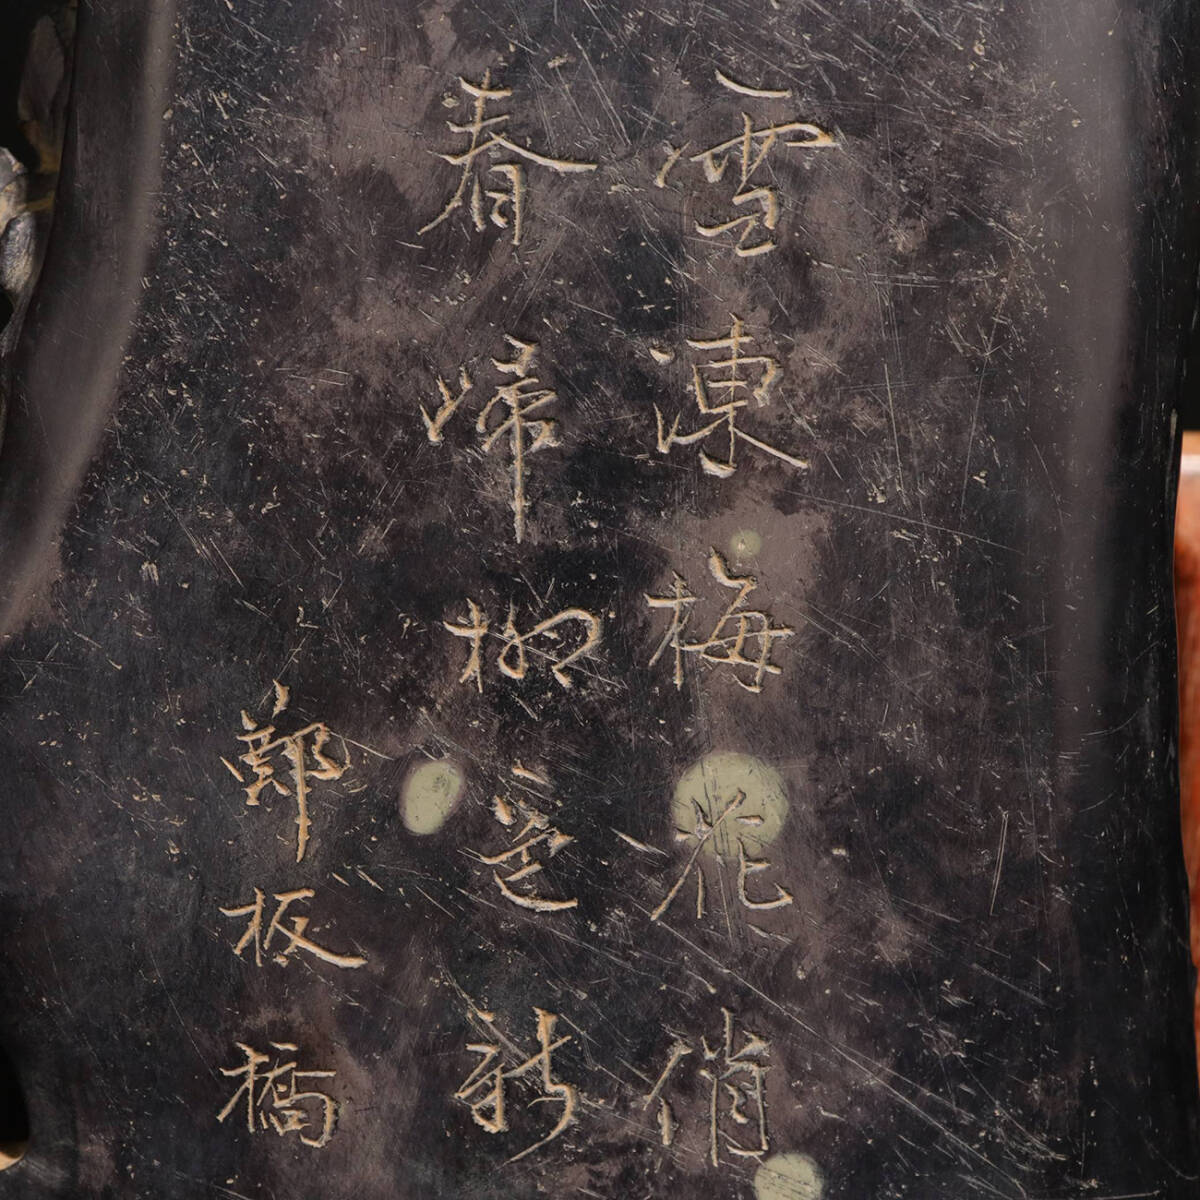 雪凍梅花俏
春歸柳色新
鄭板橋